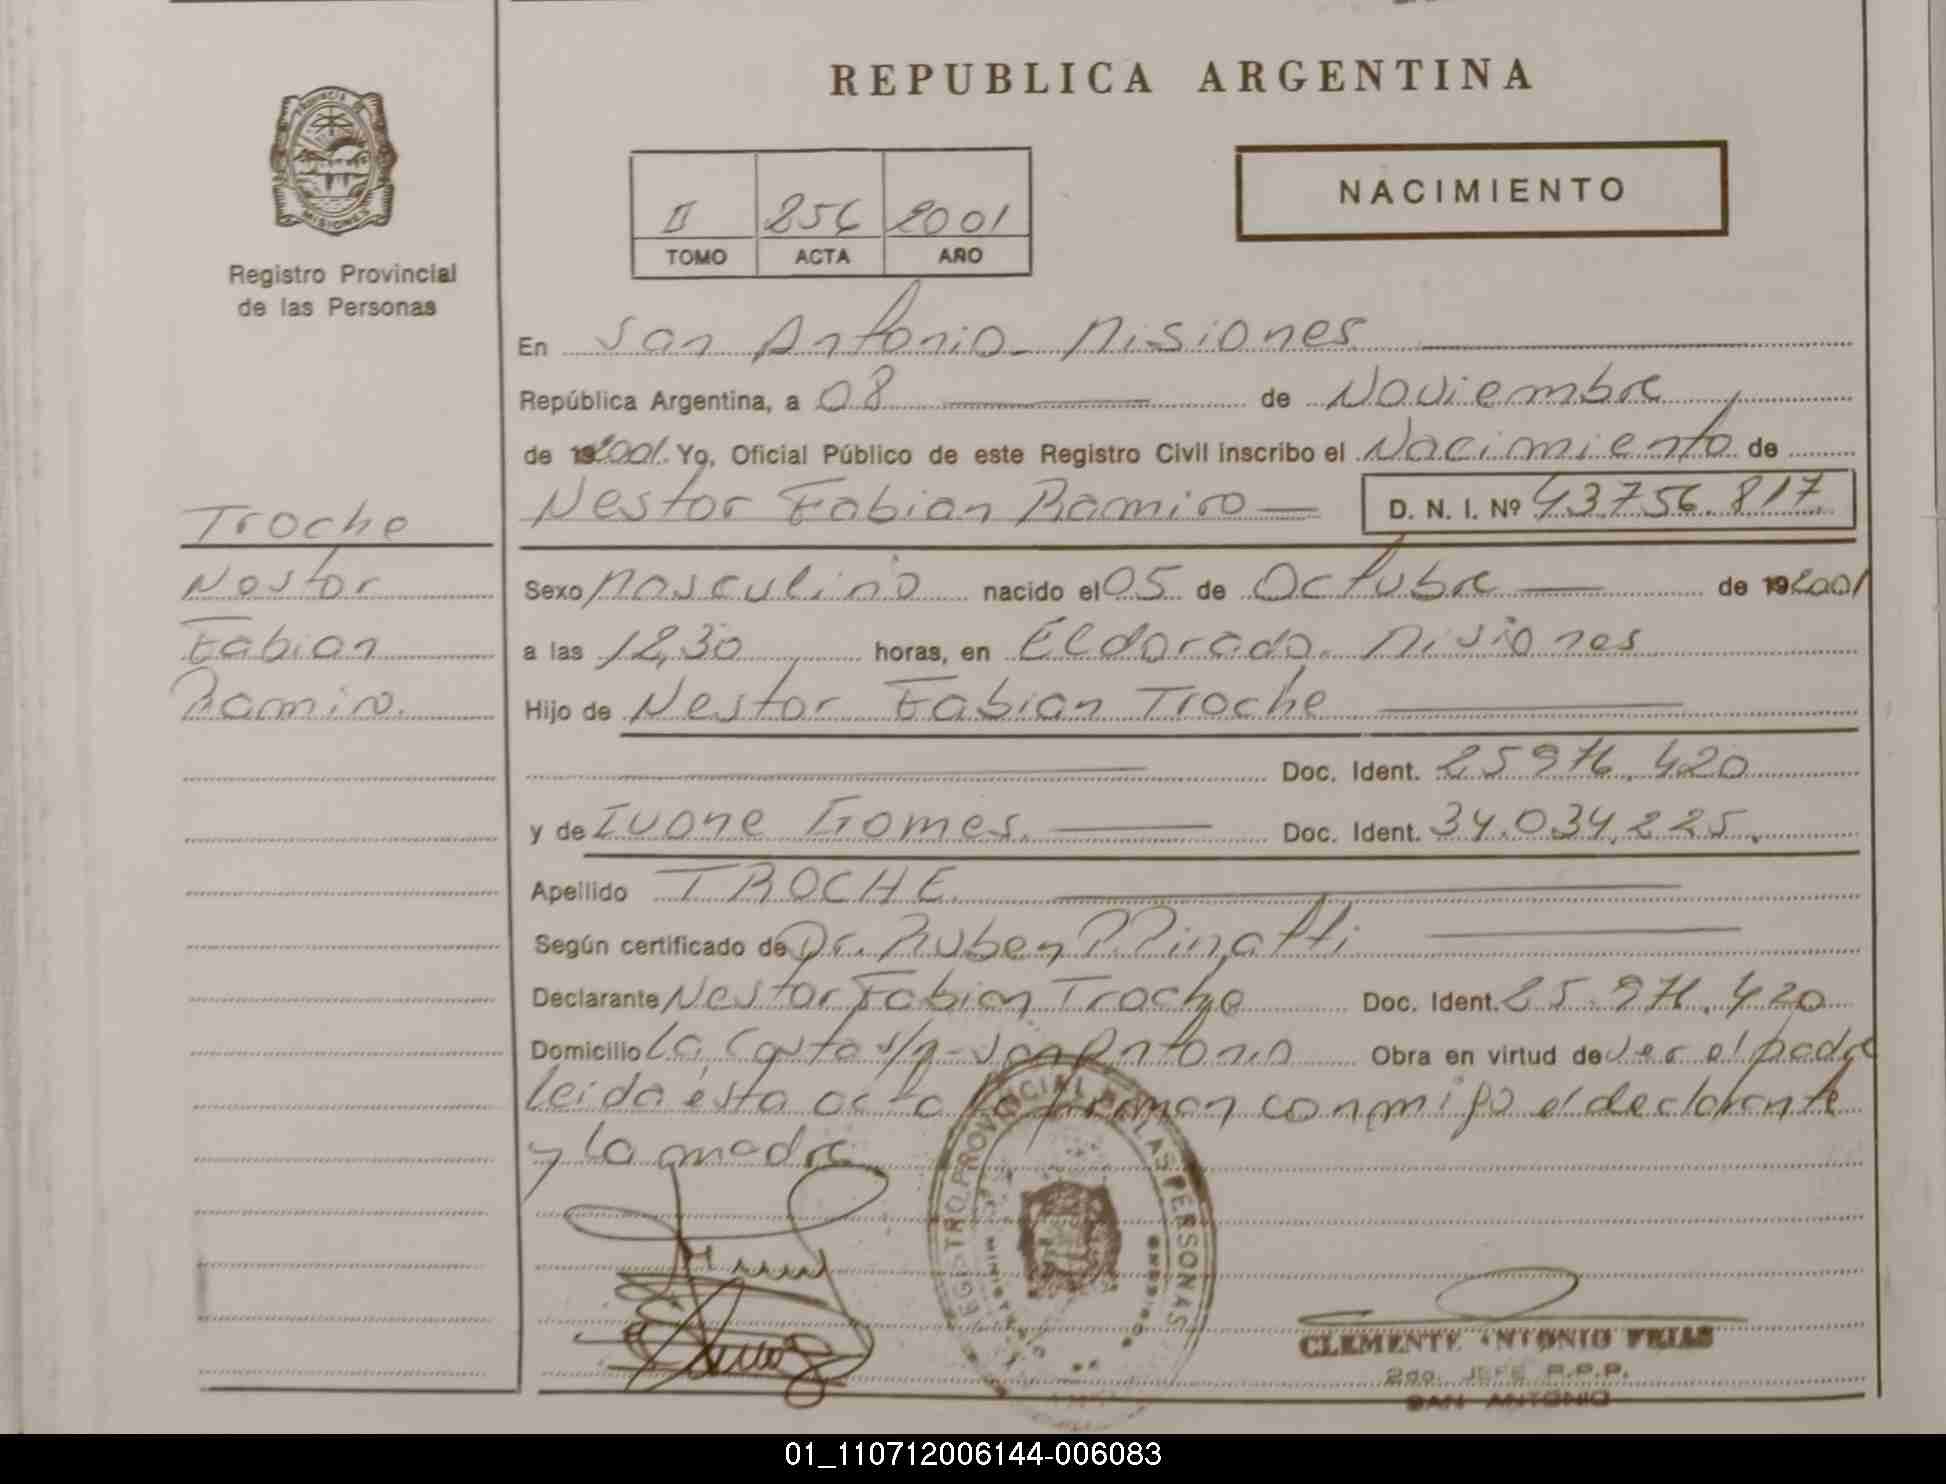 REPUBLICA ARGENTINA
NACIMIENTO
II 256 2001
TOMO ACTA AÑO
PROVINCIA DE
MISIONES
Registro Provincial
de las Personas
En San Antonio - Misiones
República Argentina, a 08 de Noviembre
de 19 2001. Yo, Oficial Público de este Registro Civil inscribo el Nacimiento de
Nestor Fabian Ramiro D. N. I. Nº 43756.817.
Troche
Nestor
Fabian
Ramiro.
Sexo Masculino nacido el 05 de Octubre de 19 2001
a las 12,30 horas, en Eldorado. Misiones
Hijo de Nestor Fabian Troche
Doc. Ident. 25.976.420
y de Ivone Gomes. Doc. Ident. 34.034.225.
Apellido TROCHE
Según certificado de Dr. Ruben Minatti
Declarante Nestor Fabian Troche Doc. Ident. 25.976.420
Domicilio La Costa s/n - San Antonio Obra en virtud de ser el padre
leida esta acta la firman conmigo el declarante
y la madre
REGISTRO PROVINCIAL DE LAS PERSONAS
CLEMENTE ANTONIO FRIAS
2do. JEFE R.P.P.
SAN ANTONIO
01_110712006144-006083